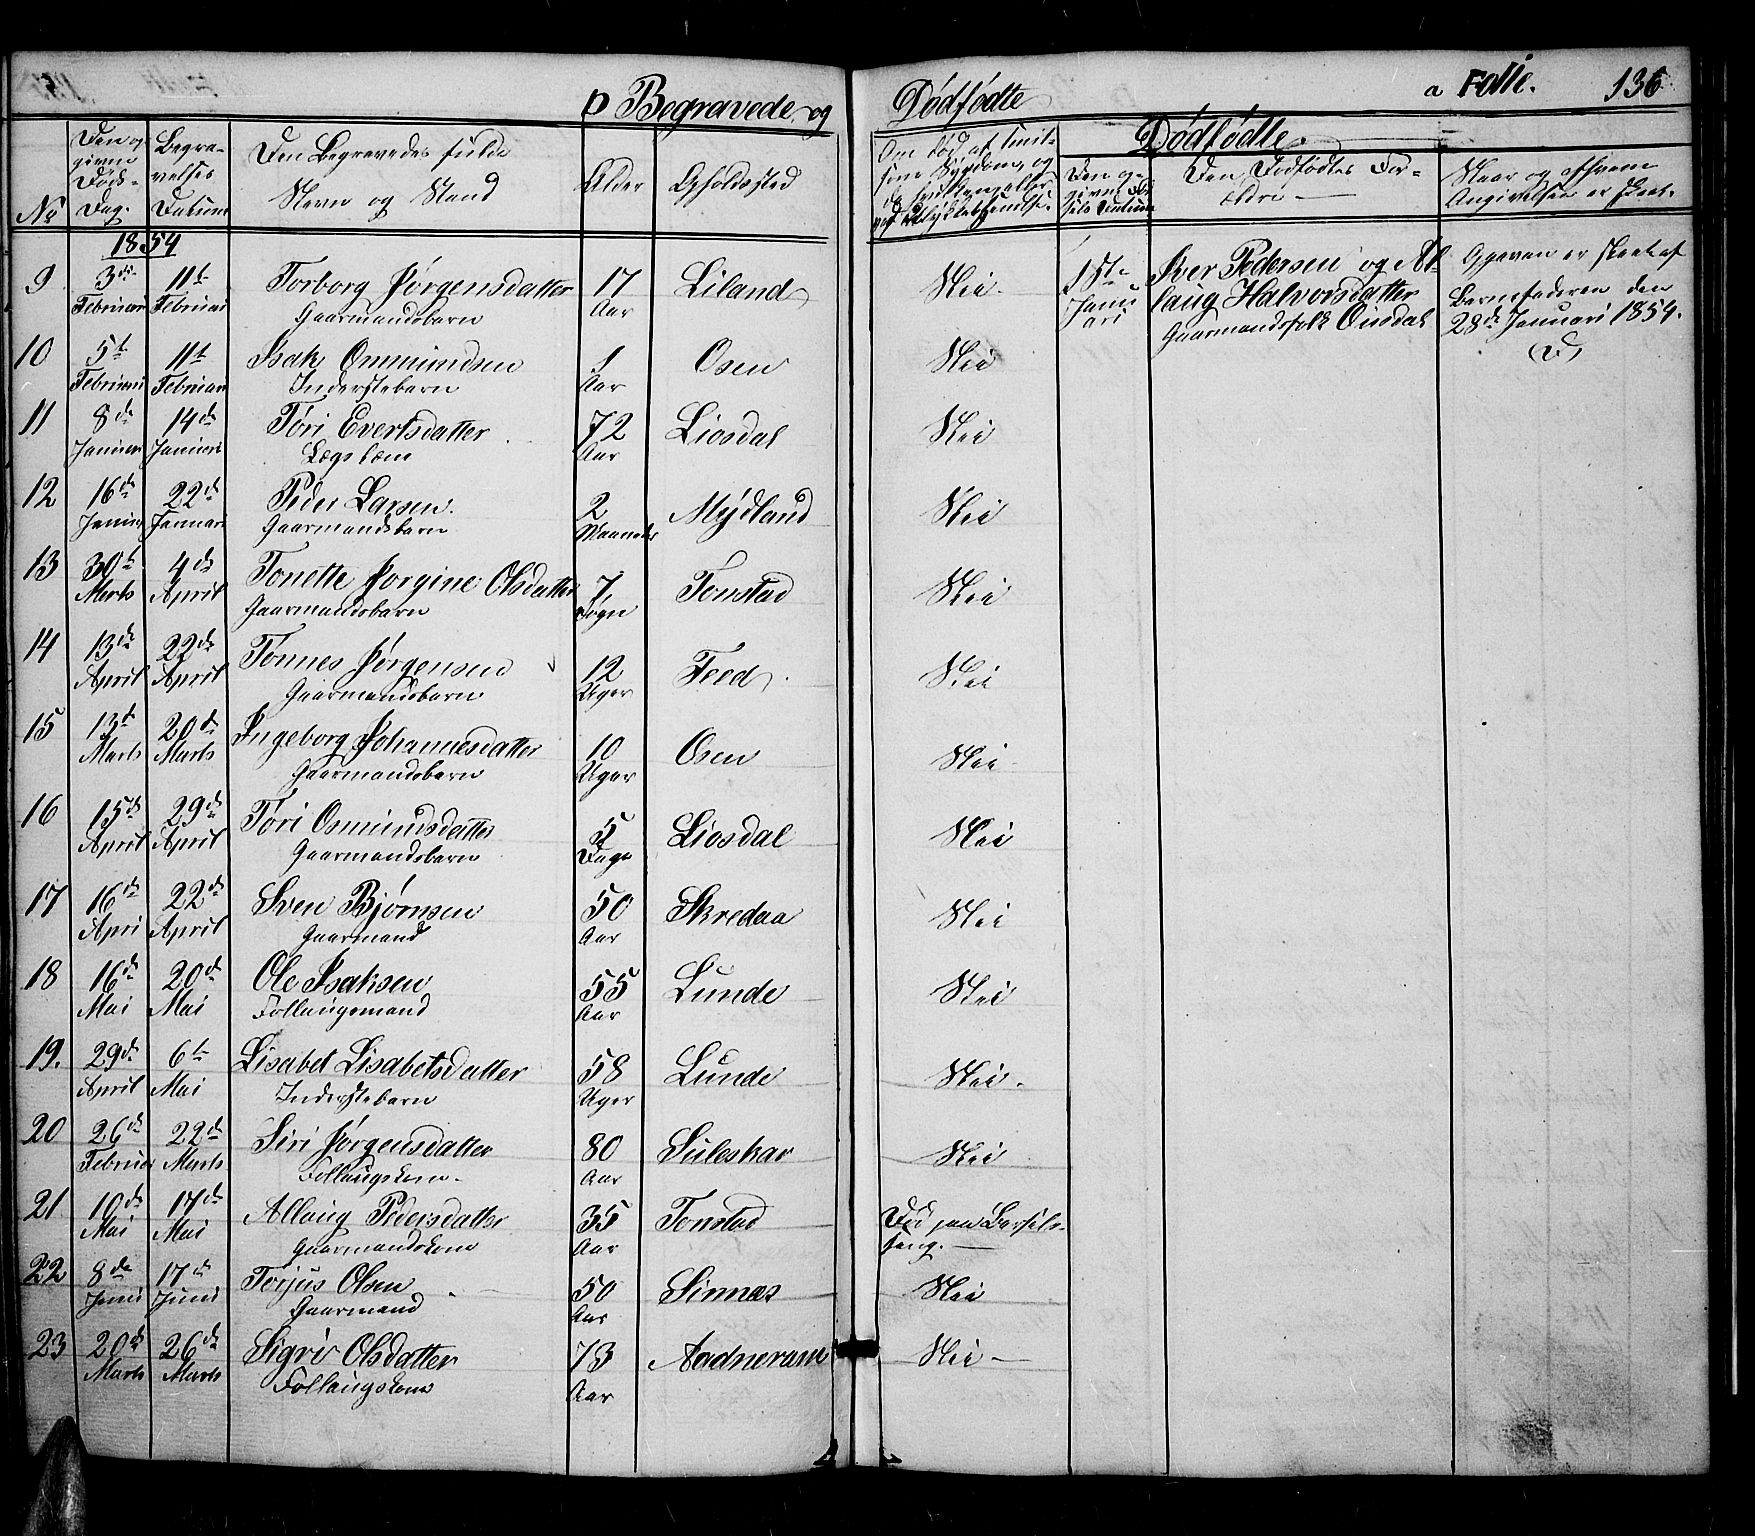 D Begravede og Dødfødte a Folie. 136
No
Den og Begra-
givne velses
Døds- Datum
Dag.
Den Begravedes fulde
Navn og Stand
Alder
Opholdssted
Dødfødte.
Den Dødfødtes For-
ældre
Naar og af hvem
Angivelsen er skeet.
1854
9 3die 11te Torborg Jørgensdatter 17 Liland Nei
Februari Februari Gaarmandsbarn Aar
15te Iver Pedersen og Al-
Janu laug Halvorsdatter
ari Gaarmandsfolk Ousdal
Opgaven er skeet af
Barnefaderen den
28de Januari 1854.
(D)
10 5te 11te Isak Ommundsen 1 Osen Nei
Februari Februari Inderstebarn Aar
11 8de 14de Tøri Evertsdatter 72 Liosdal Nei
Januari Januari Lægslem Aar
12 16de 22de Peder Larsen. 2 Mydland Nei
Januar Januari Gaarmandsbarn Maaneder
13 30te 4de Tonette Jorgine Olsdatter 7 Tonstad Nei
Marts April Gaarmandsbarn Døgn
14 13de 22de Tønnes Jørgensen 12 Feed Nei
April April Gaarmandsbarn Uger
15 13de 20de Ingeborg Johannesdatter 10 Osen Nei
Marts Marts Gaarmandsbarn Uger
16 15de 29de Tøri Osmundsdatter 5 Liosdal Nei
April April Gaarmandsbarn Dage
17 16de 22de Sven Bjørnsen 50 Skredaa Nei
April April Gaarmand Aar
18 16de 20de Ole Isaksen 55 Lunde Nei
Mai Mai Follaugsmand Aar
19. 29de 6te Lisabet Lisabetsdatter 58 Lunde Nei
April Mai Inderstebarn Uger
20 26de 22de Siri Jørgensdatter 80 Suleskar Nei
Februar Marts Follaugskone Aar
21 10de 17de Allaug Pedersdatter 35 Tonstad Død paa Barsels-
Mai Mai Gaarmandskone Aar seng.
22 8de 17de Torjus Olsen 50 Sinnes Nei
Juni Juni Gaarmand Aar
23 20de 26de Sigri Olsdatter 73 Aadneram Nei
Marts Marts Follaugskone Aar